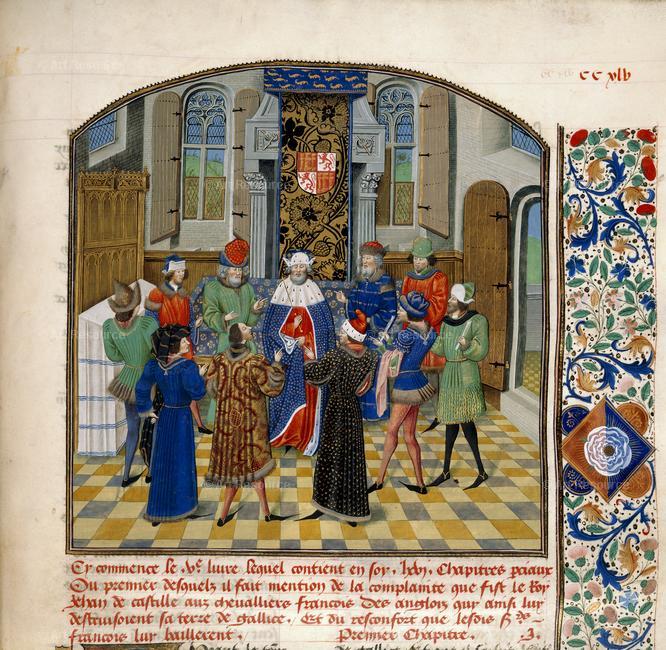 CC xlv
Cy commence le .V.e livre lequel contient en soy .lxvj. Chapitres p̄ciaux
Ou premier desquelz il fait mention de la complainte que fist le Roy
Jehan de castille aux chevalliers francois Des anglois qui ainsi luy
destruisoient sa terre de gallice. Et du resconfort que lesdis
francois luy baillerent.
Premier Chapitre. .I.